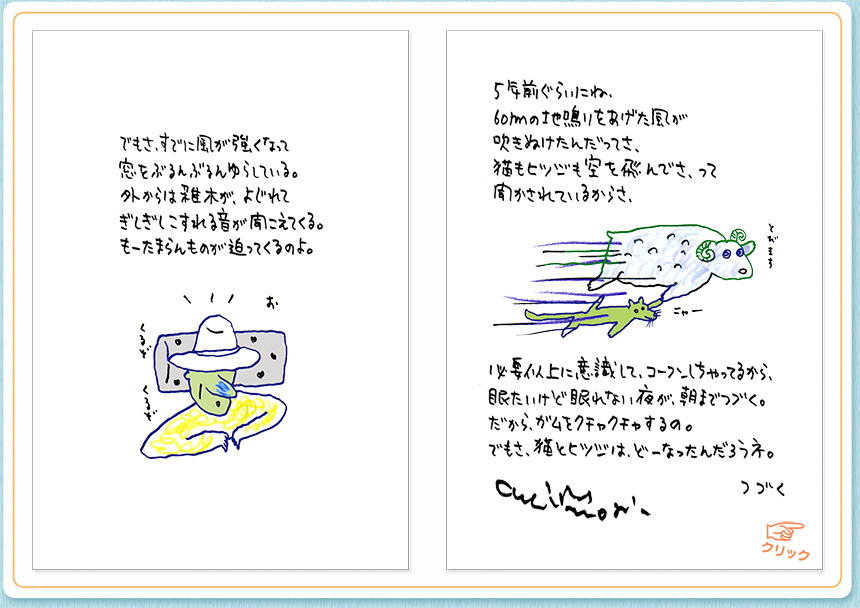 でもさ、すでに風が強くなって
窓をぶるんぶるんゆらしている。
外からは雑木が、よじれて
ぎしぎしこすれる音が聞こえてくる。
もーたまらんものが迫ってくるのよ。
お
くるぞ
くるぞ
5年前ぐらいにね、
60mの地鳴りをあげた風が
吹きぬけたんだってさ、
猫もヒツジも空を飛んでさ、って
聞かされているからさ、
ニャー
必要以上に意識して、コーフンしちゃってるから、
眠たいけど眠れない夜が、朝までつづく。
だから、ガムをクチャクチャするの。
でもさ、猫とヒツジは、どーなったんだろうネ。
つづく
クリック